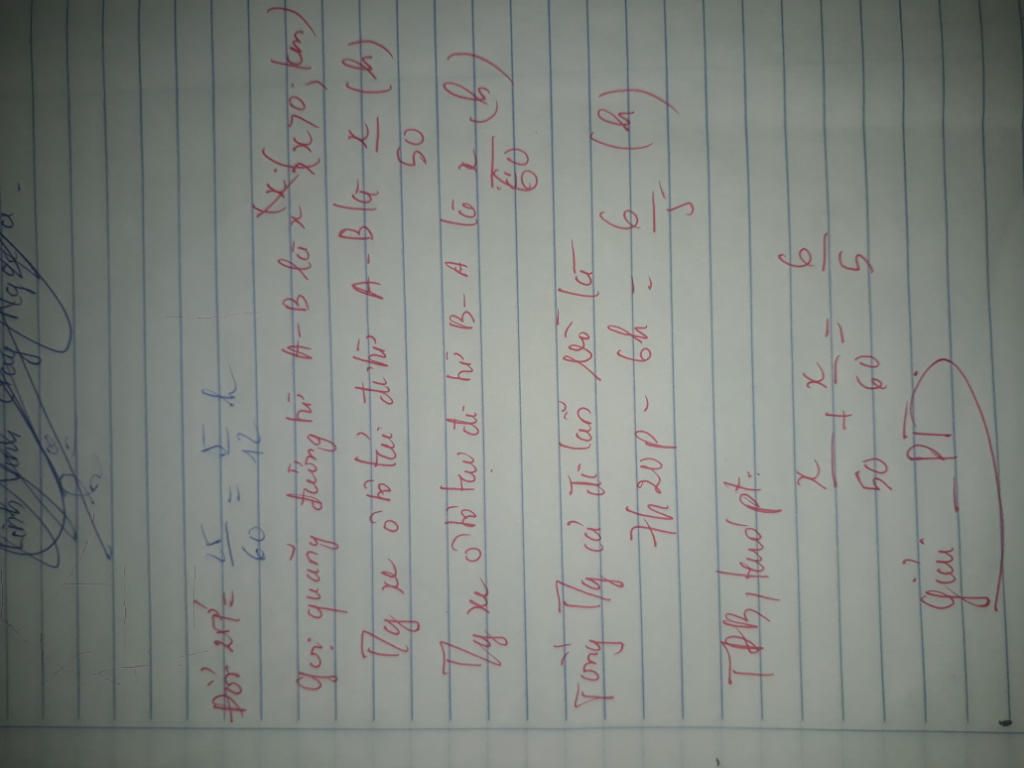 Đổi 25p = 25/60 = 5/12 h
Gọi quãng đường từ A-B là x (x>0; km)
T/g xe ô tô tải đi từ A-B là x/50 (h)
T/g xe ô tô tải đi từ B-A là x/60 (h)
Tổng T/g cả đi lẫn về là
7h20p - 6h = 6/5 (h)
TĐB, ta có pt:
x/50 + x/60 = 6/5
Giải PT